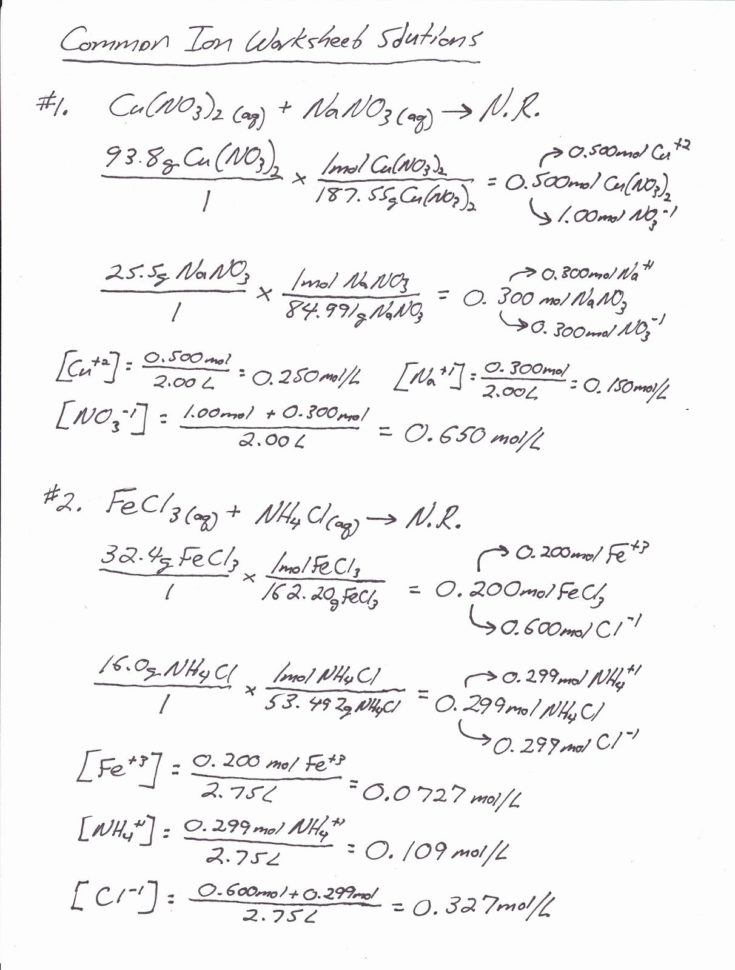 Common Ion Worksheet Solutions
#1. Cu(NO3)2 (aq) + NaNO3 (aq) → N.R.
93.8g Cu(NO3)2 / 1 × 1mol Cu(NO3)2 / 187.55g Cu(NO3)2 = 0.500mol Cu(NO3)2 → 0.500mol Cu+2
→ 1.00mol NO3-1
25.5g NaNO3 / 1 × 1mol NaNO3 / 84.991g NaNO3 = 0.300 mol NaNO3 → 0.300mol Na+1
→ 0.300mol NO3-1
[Cu+2] = 0.500mol / 2.00 L = 0.250mol/L [Na+1] = 0.300mol / 2.00L = 0.150mol/L
[NO3-1] = 1.00mol + 0.300mol / 2.00L = 0.650 mol/L
#2. FeCl3(aq) + NH4Cl(aq) → N.R.
32.4g FeCl3 / 1 × 1mol FeCl3 / 162.20g FeCl3 = 0.200mol FeCl3 → 0.200mol Fe+3
→ 0.600mol Cl-1
16.0g NH4Cl / 1 × 1mol NH4Cl / 53.492g NH4Cl = 0.299mol NH4Cl → 0.299mol NH4+1
→ 0.299mol Cl-1
[Fe+3] = 0.200 mol Fe+3 / 2.75L = 0.0727 mol/L
[NH4+1] = 0.299mol NH4+1 / 2.75L = 0.109 mol/L
[Cl-1] = 0.600mol + 0.299mol / 2.75L = 0.327mol/L